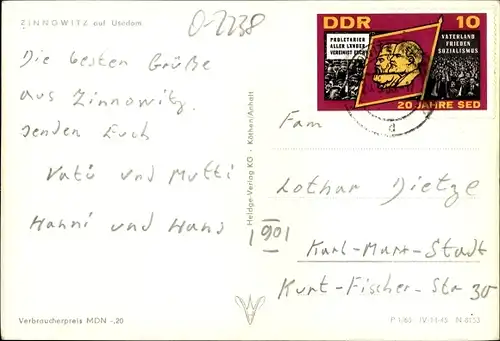 ZINNOWITZ auf Usedom
0-2238
DDR 10
PROLETARIER
ALLER LÄNDER
VEREINIGT EUCH
VATERLAND
FRIEDEN
SOZIALISMUS
20 JAHRE SED
d
Die besten Grüße
aus Zinnowitz
senden Euch
Vati und Mutti
Hanni und Hans
Heldge-Verlag KG · Köthen/Anhalt
Fam
Lothar Dietze
901
Karl-Marx-Stadt
Kurt-Fischer-Str 30
Verbraucherpreis MDN -,20
P 1/65 · IV-14-45 N 6153